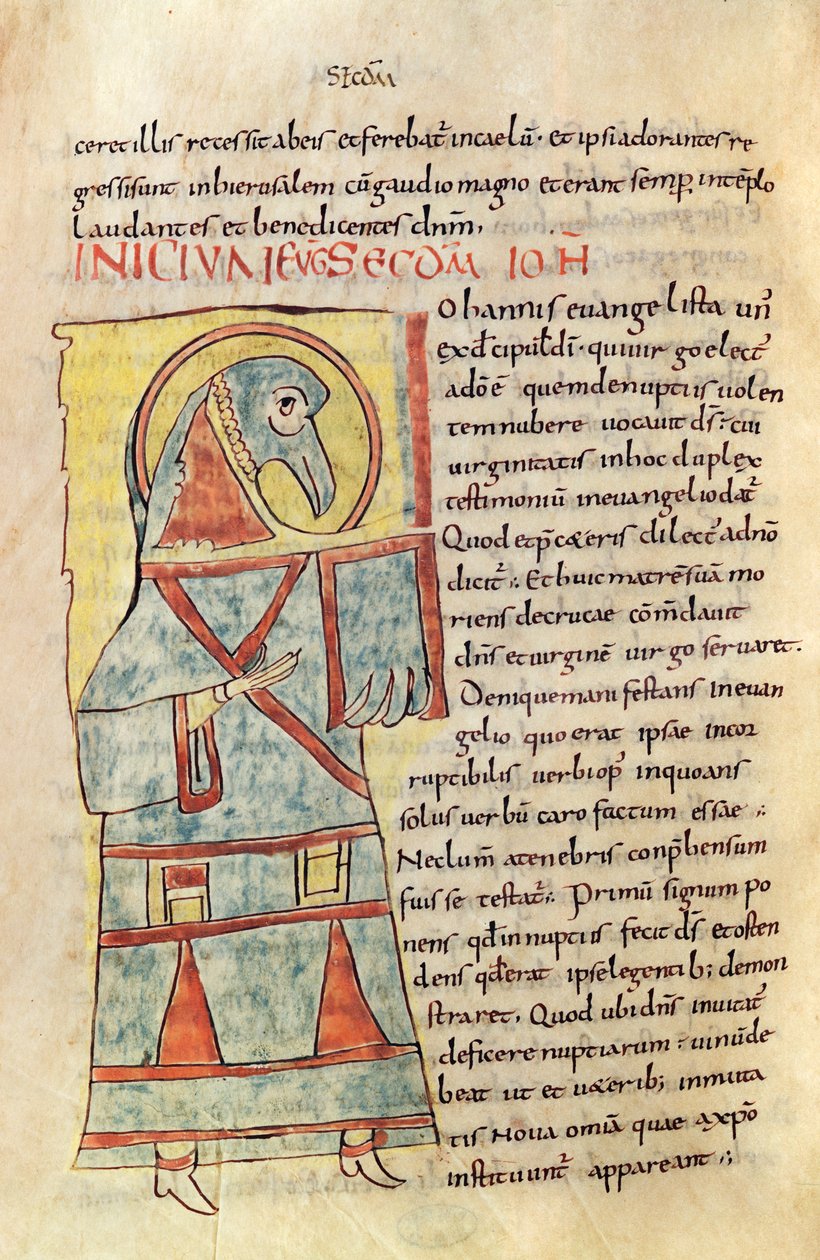 SECDM
ceret illis recessit abeis et ferebat̄ incaelū· et ipsi adorantes re
gressi sunt inhierusalem cū gaudio magno et erant semp̱ intēplo
laudantes et benedicentes dn̄m,
INICIUM EUḠ SECDM̄ IOH̄
Ohannis euangelista un̄
ex dīcipulīs dī· qui uirgo elect̄
adō ē quem denuptiis uolen
tem nubere uocauit ds̄· cui
uirginitatis in hoc duplex
testimoniū in euangelio dat̄
Quod et p̄ ceteris dilect̄ adn̄o
dicit̄·, Et huic matrē suā mo
riens decrucae cōm̄dauit
dn̄s et uirginē uirgo seruaret·
Denique manifestans ineuan
gelio quo erat ipsae incor
ruptibilis uerbi op̄ inquoans
solus uerbū caro factum essae ·,
Nec lum̄ atenebris conp̄hensum
fuisse testat̄·, Primū signum po
nens qd̄ innuptiis fecit ds̄ et osten
dens qd̄ erat ipse legentib; demon
straret, Quod ubi dn̄s inuitat̄
deficere nuptiarum · uinū de
beat ut et ueterib; inmuta
tis Noua omīa quae axp̄o
instituunt̄ appareant ·,